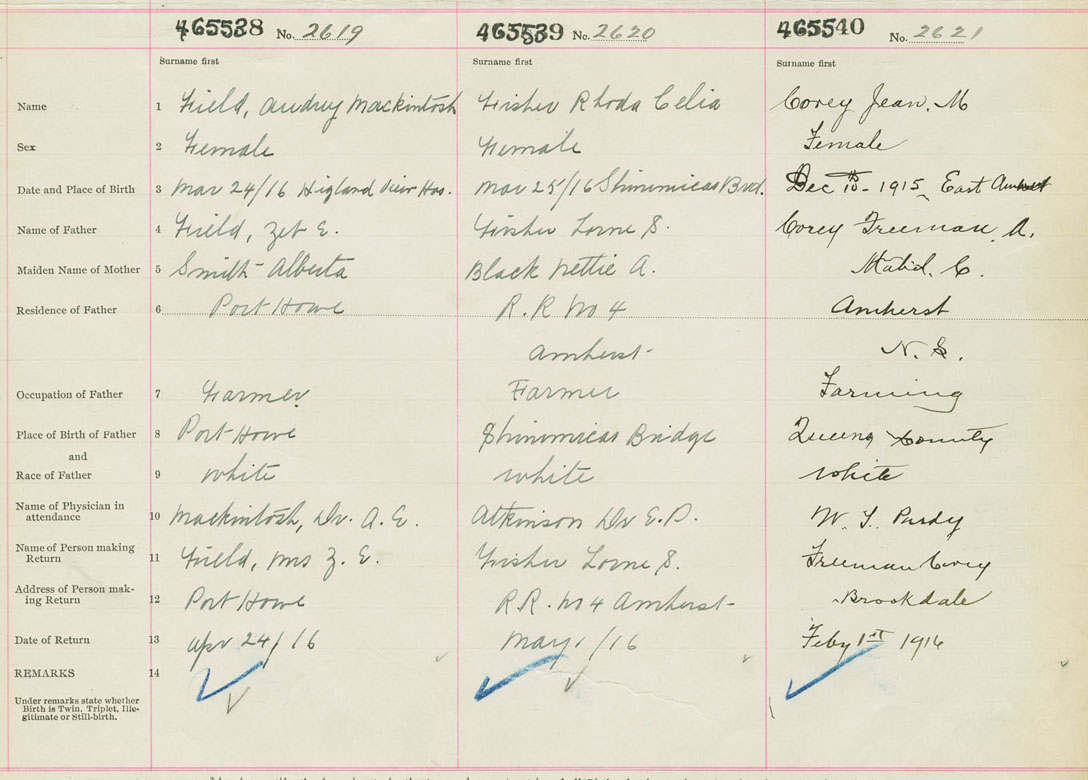 465538 No. 2619 465539 No. 2620 465540 No. 2621
Surname first Surname first Surname first
Name 1 Field, Audrey Mackintosh Fisher Rhoda Celia Corey Jean. M
Sex 2 Female Female Female
Date and Place of Birth 3 Mar 24/16 Higland View Hos. Mar 25/16 Shinimicas Brd. Dec 10th - 1915, East Amherst
Name of Father 4 Field, Zet E. Fisher Lorne S. Corey Freeman. A.
Maiden Name of Mother 5 Smith Alberta Black Nettie A. C.
Residence of Father 6 Port Howe R. R No 4 Amherst
Amherst N. S.
Occupation of Father 7 Farmer Farmer Farming
Place of Birth of Father 8 Port Howe Shinimicas Bridge Queens County
and
Race of Father 9 White White White
Name of Physician in
attendance 10 Mackintosh, Dr. A. E. Atkinson Dr E. D. W. T. Purdy
Name of Person making
Return 11 Field, Mrs Z. E. Fisher Lorne S. Freeman Corey
Address of Person mak-
ing Return 12 Port Howe R.R. No 4 Amherst Brookdale
Date of Return 13 Apr 24/16 May 1/16 Feby 1st 1916
REMARKS 14
Under remarks state whether
Birth is Twin, Triplet, Ille-
gitimate or Still-birth.